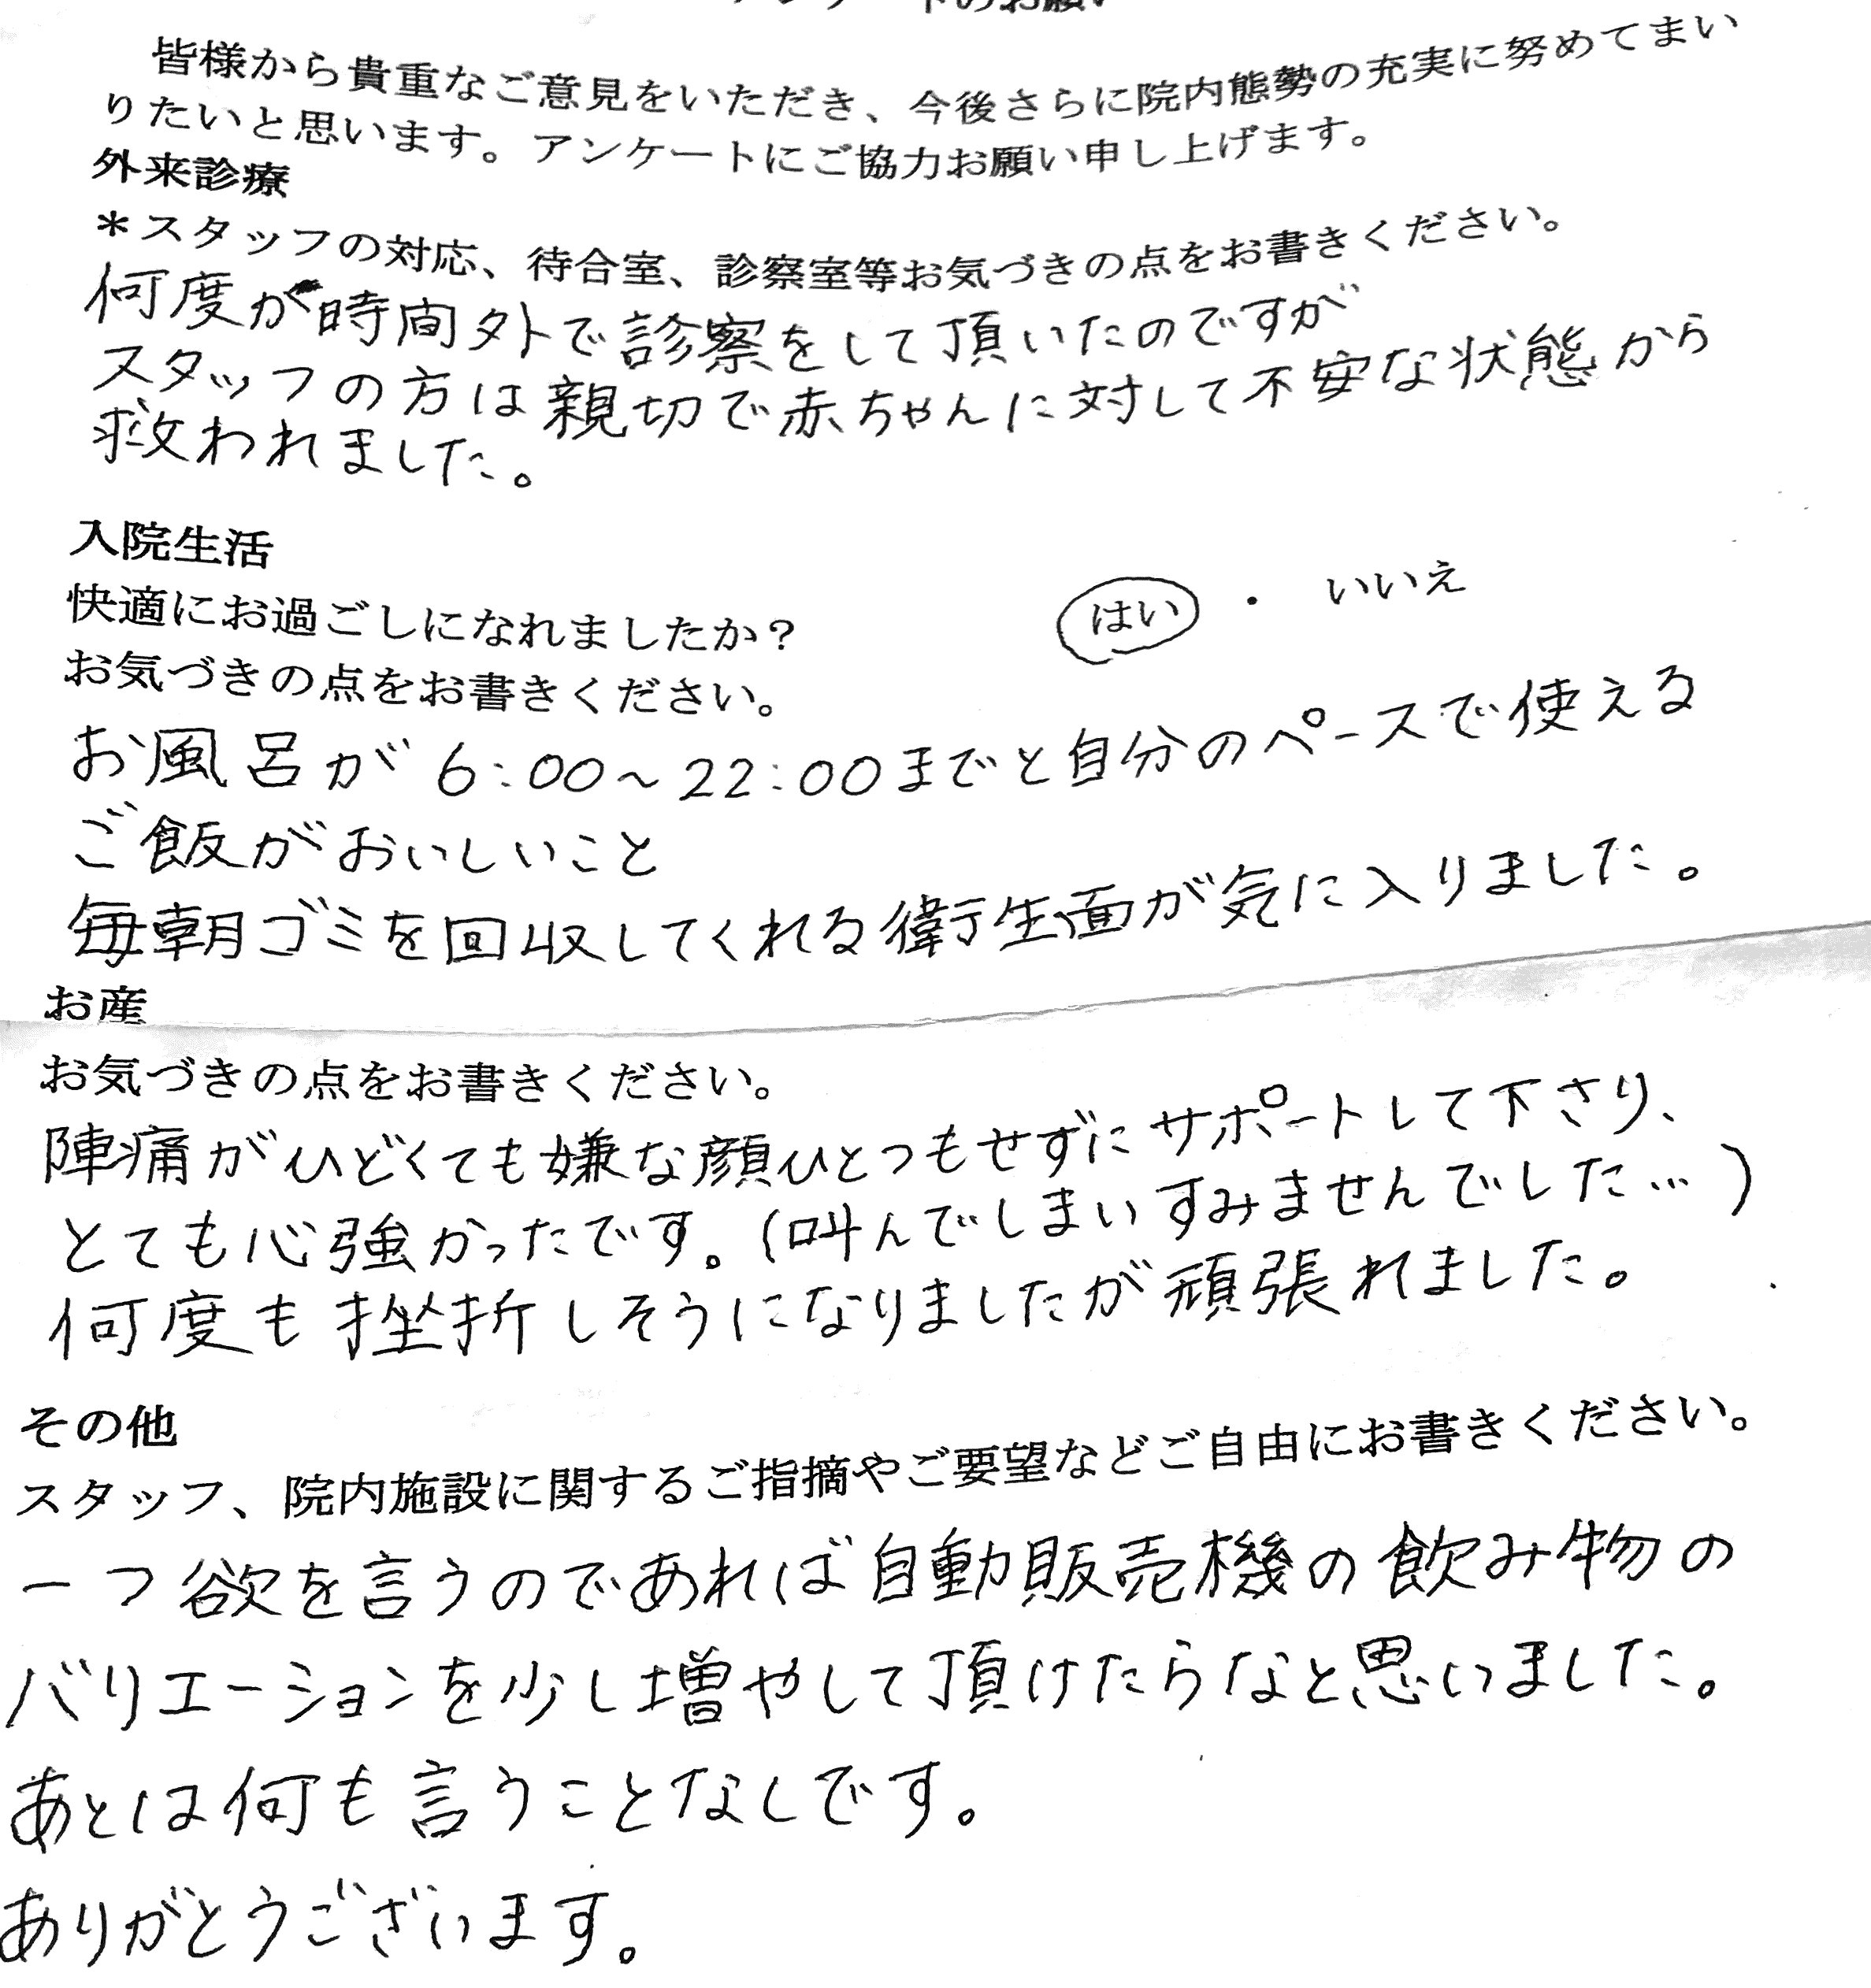 アンケートのお願い
皆様から貴重なご意見をいただき、今後さらに院内態勢の充実に努めてまい
りたいと思います。アンケートにご協力お願い申し上げます。
外来診療
＊スタッフの対応、待合室、診察室等お気づきの点をお書きください。
何度か時間外で診察をして頂いたのですが
スタッフの方は親切で赤ちゃんに対して不安な状態から
救われました。
入院生活
快適にお過ごしになれましたか？ はい ・ いいえ
お気づきの点をお書きください。
お風呂が6:00～22:00までと自分のペースで使える
ご飯がおいしいこと
毎朝ゴミを回収してくれる衛生面が気に入りました。
お産
お気づきの点をお書きください。
陣痛がひどくても嫌な顔ひとつもせずにサポートして下さり、
とても心強かったです。(叫んでしまいすみませんでした…)
何度も挫折しそうになりましたが頑張れました。
その他
スタッフ、院内施設に関するご指摘やご要望などご自由にお書きください。
一つ欲を言うのであれば自動販売機の飲み物の
バリエーションを少し増やして頂けたらなと思いました。
あとは何も言うことなしです。
ありがとうございます。